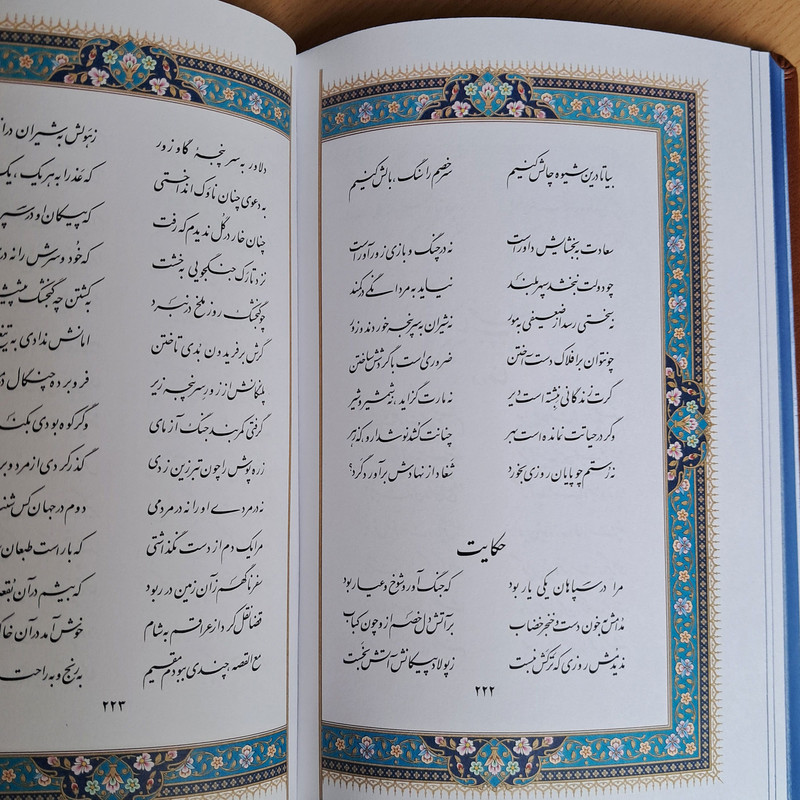 بیا تا درین شیوه چالش کنیم سر خصم را سنگ، بالش کنیم
سعادت به بخشایش داور است نه در چنگ و بازوی زورآور است
چو دولت نبخشد سپهر بلند نیاید به مردانگی در کمند
نه سختی رسد از ضعیفی به مور نه شیران به سرپنجه خوردند و زور
چو نتوان بر افلاک دست آختن ضروری است با گردشش ساختن
گرت زندگانی نبشته است دیر نه مارت گزاید، نه شمشیر و شیر
وگر در حیاتت نمانده است بهر چنانت کشد نوشدارو که زهر
نه رستم چو پایان روزی بخورد شغاد از نهادش برآورد گرد؟
حکایت
مرا در سپاهان یکی یار بود که جنگ‌آور و شوخ و عیار بود
مدامش به خون دست و خنجر خضاب بر آتش دل خصم ازو چون کباب
ندیدمش روزی که ترکش نبست ز پولاد پیکانش آتش نجست
۲۲۲
دلاور به سرپنجهٔ گاوزور ز هولش به شیران
به دعوی چنان ناوک انداختی که عذرا به هر یک، یک
چنان خار در گُل ندیدم که رفت که پیکان او در
نزد تارک جنگجویی به خشت که خُود و سرش را نه
چو گنجشک روز ملخ در نبرد به کشتن چه گنجشک پیشش
گرش بر فریدون بُدی تاختن امانش ندادی به تیغ
پلنگانش از زور سرپنجه زیر فرو برده چنگال
گرفتی کمربند جنگ آزمای وگر کوه بودی
زره پوش را چون تبرزین زدی گذر کردی از مرد و
نه در مردی او را نه در مردمی دوم در جهان کس
مرا یک دم از دست نگذاشتی که با راست طبعان
سفر ناگهم زآن زمین در ربود که بیشم در آن
قضا نقل کرد از عراقم به شام خوش آمد در آن
مع القصه چندی ببودم مقیم به رنج و به راحت
۲۲۳